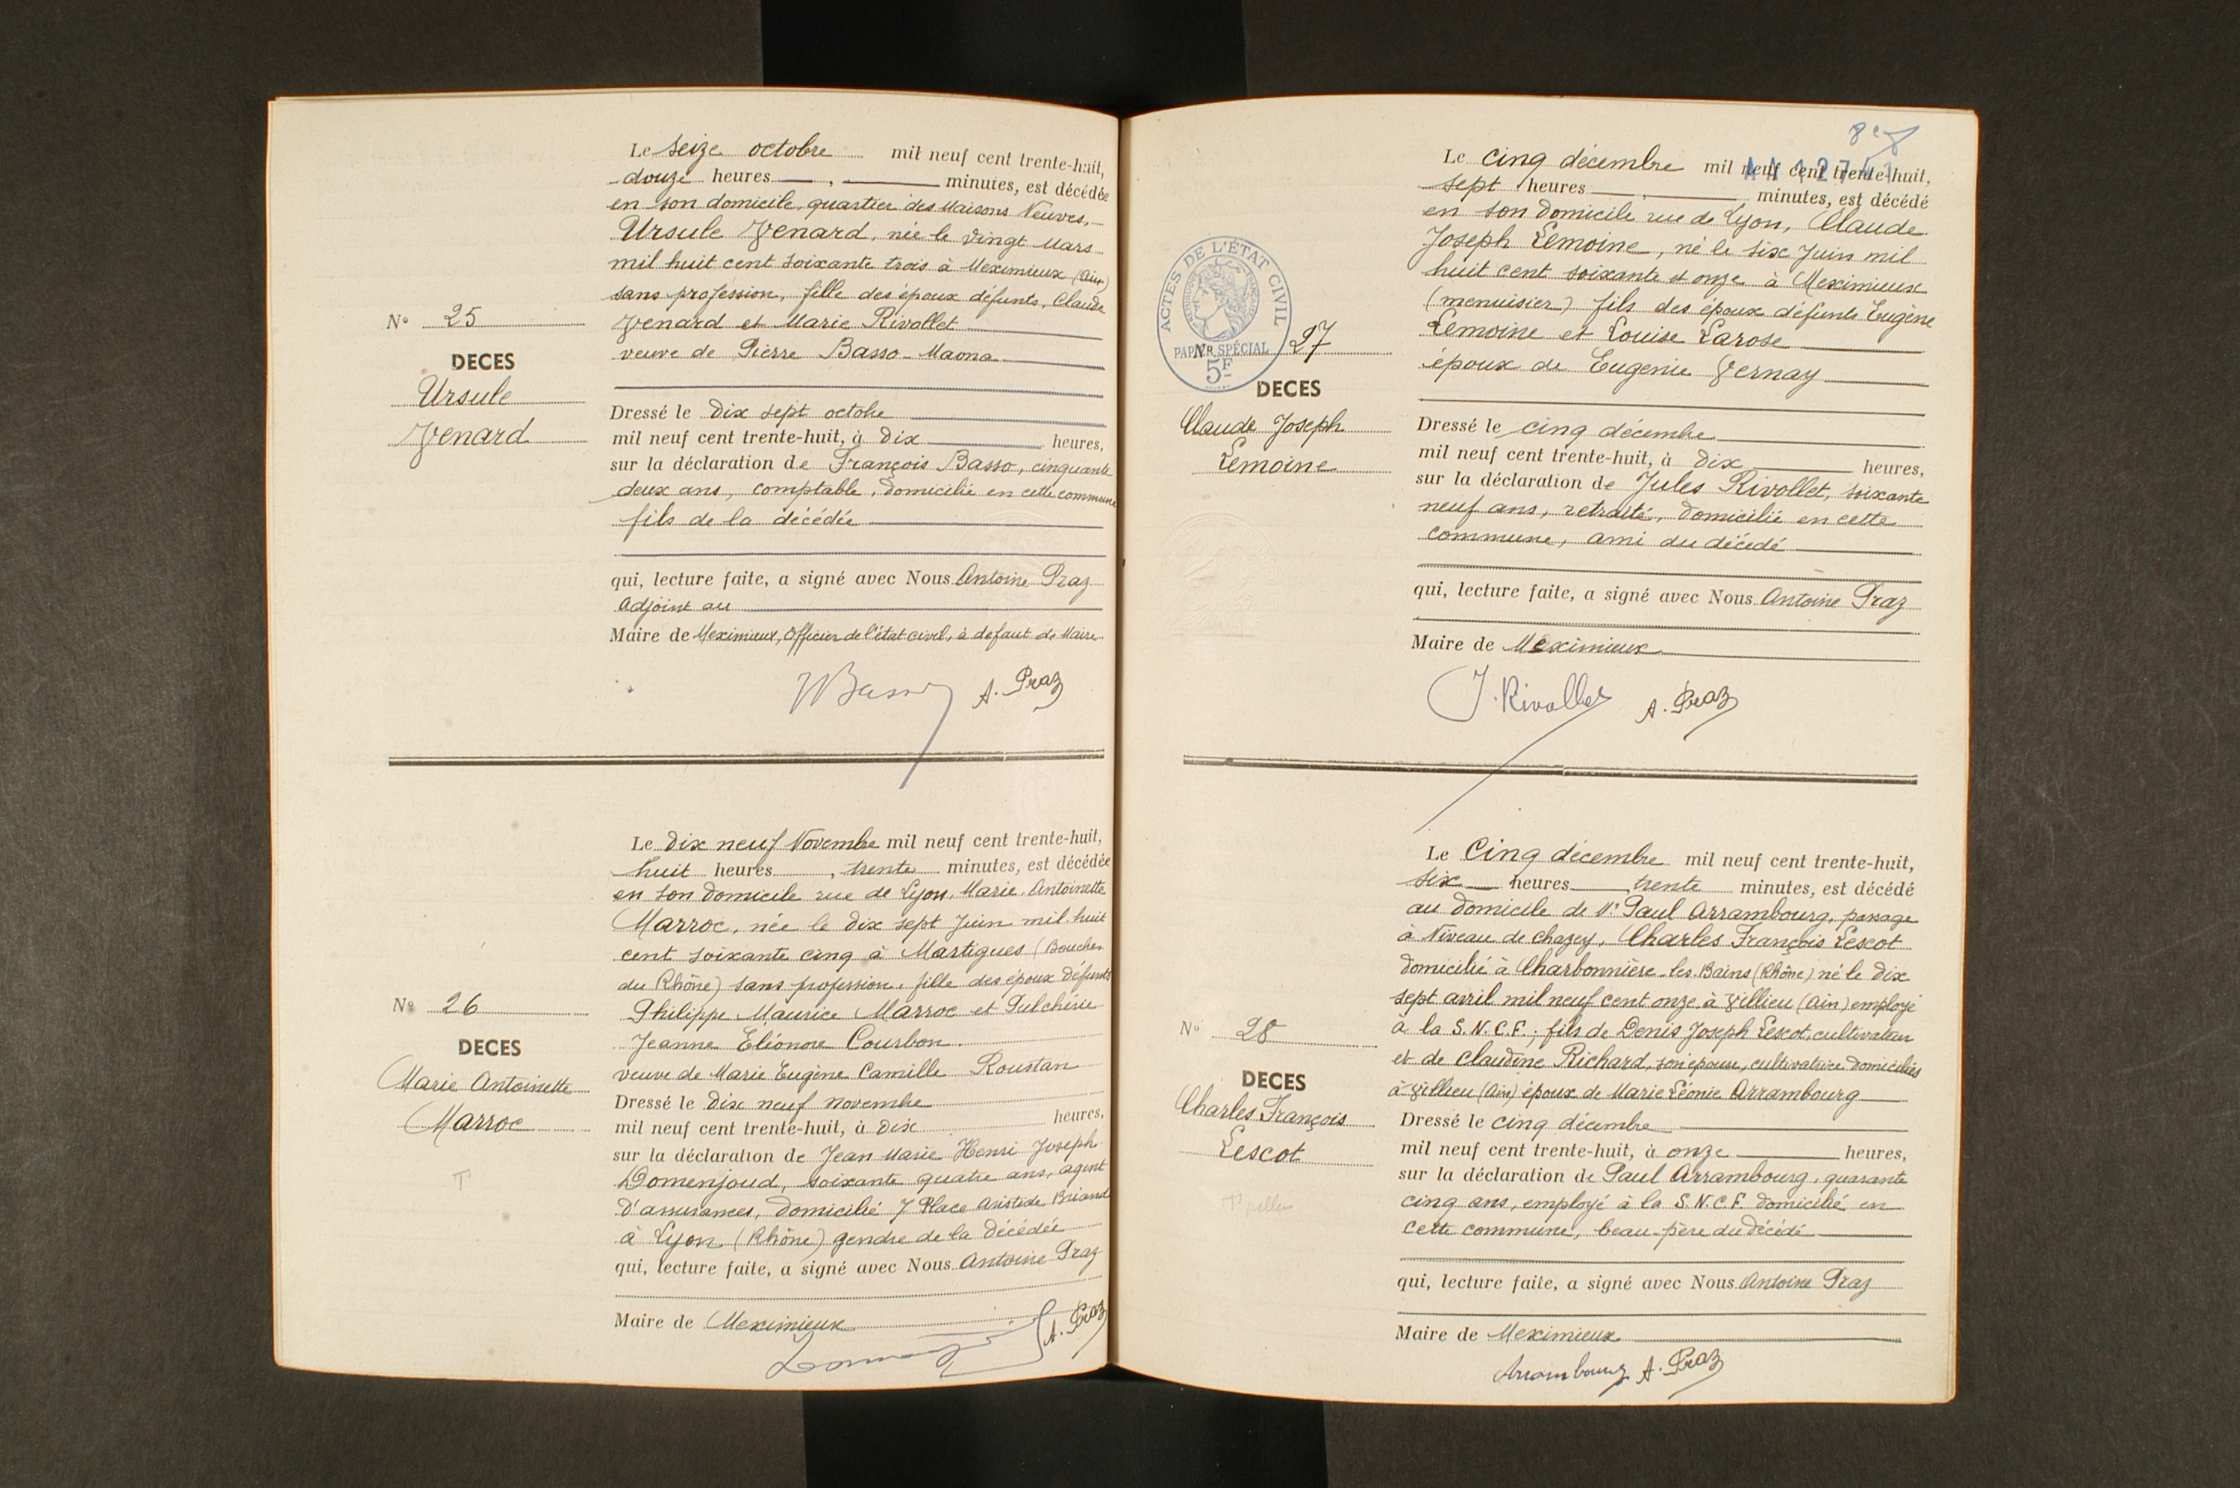 Le seize octobre mil neuf cent trente-huit,
douze heures , minutes, est décédée
en son domicile, quartier des Maisons Neuves,
Ursule Venard, née le vingt mars
mil huit cent soixante trois à Meximieux (Ain)
sans profession, fille des époux défunts, Claude
Venard et Marie Rivollet
veuve de Pierre Basso-Maona
N° 25
DECES
Ursule
Venard
Dressé le dix sept octobre
mil neuf cent trente-huit, à dix heures,
sur la déclaration de François Basso, cinquante
deux ans, comptable, domicilié en cette commune
fils de la décédée
qui, lecture faite, a signé avec Nous Antoine Praz
adjoint au
Maire de Meximieux, Officier de l'état civil, à défaut de Maire
A. Praz
Le dix neuf Novembre mil neuf cent trente-huit,
huit heures , trente minutes, est décédée
en son domicile rue de Lyon, Marie Antoinette
Marroc, née le dix sept Juin mil huit
cent soixante cinq à Martigues (Bouches
du Rhône) sans profession, fille des époux défunts
Philippe Maurice Marroc et Pulchérie
Jeanne Eléonore Courbon.
veuve de Marie Eugène Camille Roustan
N° 26
DECES
Marie Antoinette
Marroc
T
Dressé le dix neuf novembre
mil neuf cent trente-huit, à dix heures,
sur la déclaration de Jean Marie Henri Joseph
Domenjoud, soixante quatre ans, agent
d'assurances, domicilié 7 Place Aristide Briand
à Lyon (Rhône) gendre de la décédée
qui, lecture faite, a signé avec Nous Antoine Praz
Maire de Meximieux
A. Praz
8e
Le cinq décembre mil neuf cent trente-huit,
sept heures , minutes, est décédé
en son domicile rue de Lyon, Claude
Joseph Lemoine, né le six Juin mil
huit cent soixante et onze à Meximieux
(menuisier) fils des époux défunts Eugène
Lemoine et Louise Larose
époux de Eugénie Vernay
ACTES DE L'ÉTAT CIVIL
PAPIER SPÉCIAL
5F
N° 27
DECES
Claude Joseph
Lemoine
Dressé le cinq décembre
mil neuf cent trente-huit, à dix heures,
sur la déclaration de Jules Rivollet, soixante
neuf ans, retraité, domicilié en cette
commune, ami du décédé
qui, lecture faite, a signé avec Nous Antoine Praz
Maire de Meximieux
J. Rivollet A. Praz
Le Cinq décembre mil neuf cent trente-huit,
six heures , trente minutes, est décédé
au domicile de Mr Paul Arrambourg, passage
à Niveau de Chazey, Charles François Lescot
domicilié à Charbonnière-les-Bains (Rhône) né le dix
sept avril mil neuf cent onze à Villieu (Ain) employé
à la S.N.C.F.; fils de Denis Joseph Lescot, cultivateur
et de Claudine Richard, son épouse, cultivatrice domiciliés
à Villieu (Ain) époux de Marie Léonie Arrambourg
N° 28
DECES
Charles François
Lescot
Dressé le cinq décembre
mil neuf cent trente-huit, à onze heures,
sur la déclaration de Paul Arrambourg, quarante
cinq ans, employé à la S.N.C.F. domicilié en
cette commune, beau-père du décédé
qui, lecture faite, a signé avec Nous Antoine Praz
Maire de Meximieux
Arrambourg A. Praz